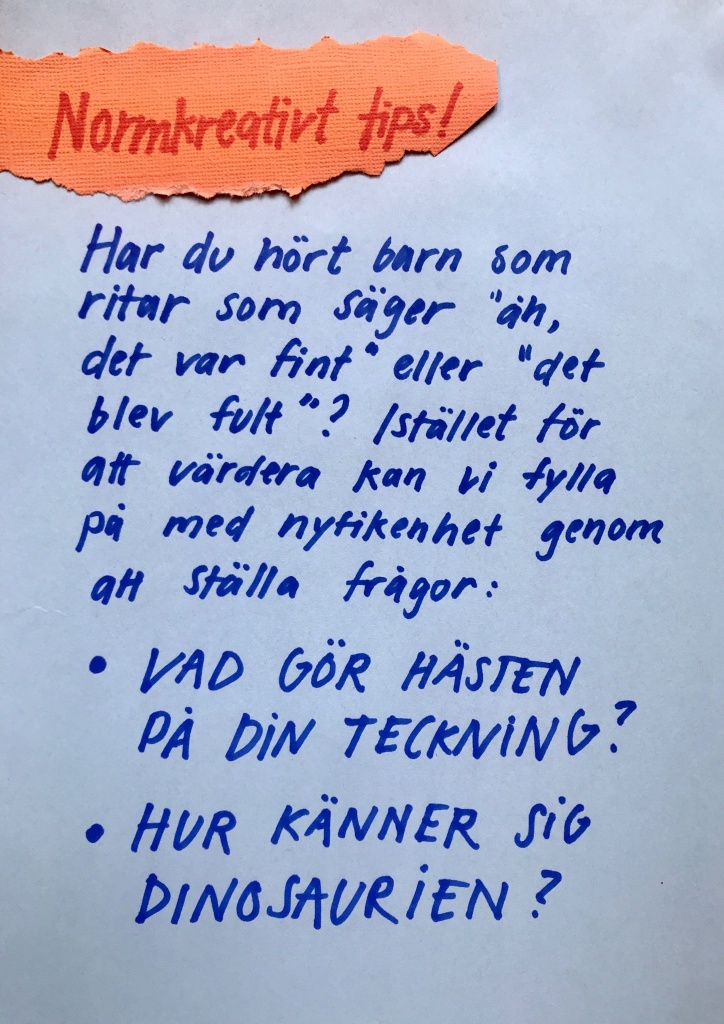 Normkreativt tips!
Har du hört barn som
ritar som säger "åh,
det var fint" eller "det
blev fult"? Istället för
att värdera kan vi fylla
på med nyfikenhet genom
att ställa frågor:
• VAD GÖR HÄSTEN
PÅ DIN TECKNING?
• HUR KÄNNER SIG
DINOSAURIEN?